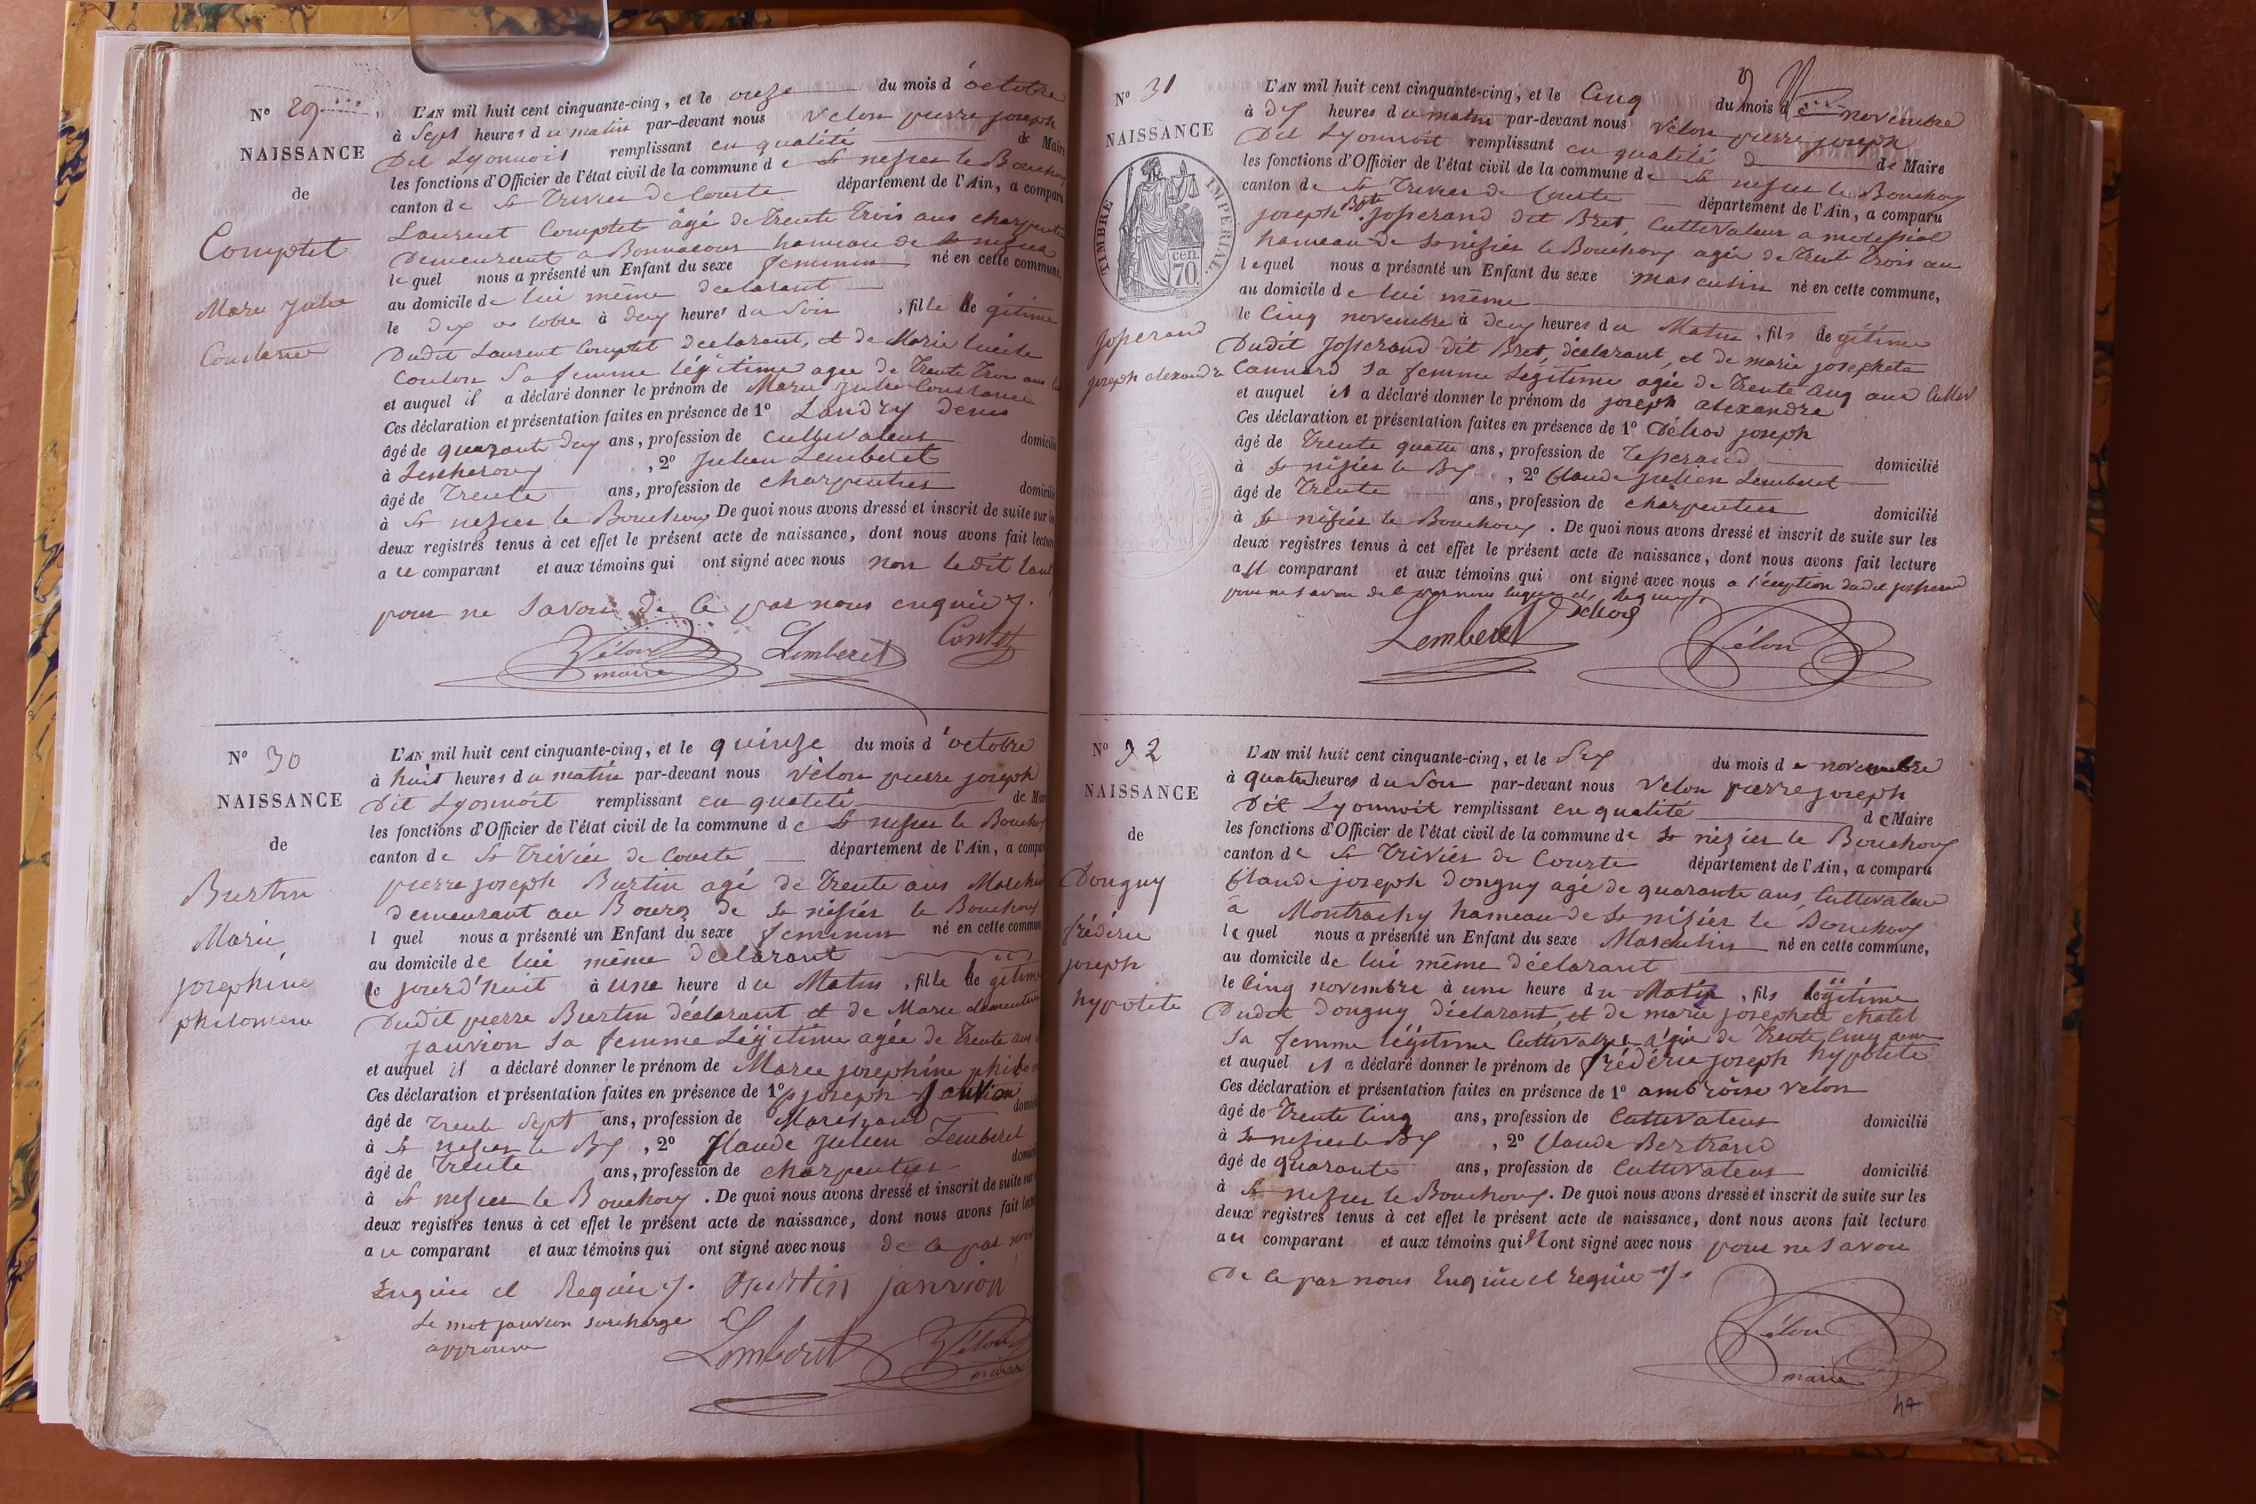 N° 29
NAISSANCE
de
Comptet
Marie Julie
Constance
L'AN mil huit cent cinquante-cinq, et le onze du mois d'octobre
à Sept heures du matin par-devant nous Velon pierre joseph
Dit Lyonnois remplissant en qualité de Maire
les fonctions d'Officier de l'état civil de la commune de St nesier le Bouchoux
canton de St Trivier de Courte département de l'Ain, a comparu
Laurent Comptet âgé de Trente Trois ans charpentier
Demeurent a Bonnacour hameau de St nesier
lequel nous a présenté un Enfant du sexe feminin né en cette commune
au domicile de lui même declarant
le dix octobre à deux heures du Soir, fille légitime
Dudit Laurent Comptet declarant, et de Marie lucile
Coulon Sa femme légitime agee de Trente Trois ans
et auquel il a déclaré donner le prénom de Marie Julie Constance
Ces déclaration et présentation faites en présence de 1° Landry denis
âgé de quarante deux ans, profession de cultivateur domicilié
à Lescheroux, 2° Julien Lemberet
âgé de Trente ans, profession de charpentier domicilié
à St nesier le Bouchoux De quoi nous avons dressé et inscrit de suite sur les
deux registres tenus à cet effet le présent acte de naissance, dont nous avons fait lecture
au comparant et aux témoins qui ont signé avec nous non ledit
pour ne Savoir de ce par nous enquis
Vélon
maire
Lemberet
Comptet
N° 30
NAISSANCE
de
Burtin
Marie
josephine
philomene
L'AN mil huit cent cinquante-cinq, et le quinze du mois d'octobre
à huit heures du matin par-devant nous Vélon pierre joseph
Dit Lyonnoit remplissant en qualité de Maire
les fonctions d'Officier de l'état civil de la commune de St nesier le Bouchoux
canton de St Trivier de Courte département de l'Ain, a comparu
pierre joseph Burtin agé de Trente ans Marchand
demeurant au Bourg de St nisier le Bouchoux
lequel nous a présenté un Enfant du sexe feminin né en cette commune
au domicile de lui même declarant
le jourd'huit à une heure du Matin, fille légitime
Dudit pierre Burtin déclarant et de Marie
janvion Sa femme Légitime agée de Trente ans
et auquel il a déclaré donner le prénom de Marie josephine
Ces déclaration et présentation faites en présence de 1° joseph janvion
âgé de trente sept ans, profession de Marechand
à St nesier le Bx, 2° Claude Julien Lemberet
âgé de Trente ans, profession de charpentier
à St nesier le Bouchoux. De quoi nous avons dressé et inscrit de suite sur
deux registres tenus à cet effet le présent acte de naissance, dont nous avons fait lecture
au comparant et aux témoins qui ont signé avec nous de ce par nous
Enquis et Requis. Burtin janvion
Le mot janvion surchargé
approuvé
Lemberet
Vélon
maire
N° 31
NAISSANCE
TIMBRE IMPÉRIAL
70 cen.
Josserand
joseph alexandre
L'AN mil huit cent cinquante-cinq, et le Cinq du mois de novembre
à dix heures du matin par-devant nous Velon pierre joseph
Dit Lyonnoit remplissant en qualité de Maire
les fonctions d'Officier de l'état civil de la commune de St nesier le Bouchoux
canton de St Trivier de Courte département de l'Ain, a comparu
joseph Bte Josserand dit Bret, Cultivateur a
hameau de St nisier le Bouchoux agée de Trente Trois an
lequel nous a présenté un Enfant du sexe masculin né en cette commune,
au domicile de lui même
le Cinq novembre à deux heures du Matin, fils légitime
Dudit Josserand dit Bret, déclarant, et de marie josephete
Cannard Sa femme Légitime agée de Trente Cinq ans
et auquel il a déclaré donner le prénom de joseph alexandre
Ces déclaration et présentation faites en présence de 1° joseph
âgé de Trente quatre ans, profession de Tisserand domicilié
à St nisier le Bx, 2° Claude Julien Lemberet
âgé de Trente ans, profession de charpentier domicilié
à St nisier le Bouchoux. De quoi nous avons dressé et inscrit de suite sur les
deux registres tenus à cet effet le présent acte de naissance, dont nous avons fait lecture
au comparant et aux témoins qui ont signé avec nous a l'éception dudit josserand
pour ne savoir de ce par nous enquis et Requis
Lemberet
Vélon
N° 32
NAISSANCE
de
Dongny
frédéric
joseph
hypolite
L'AN mil huit cent cinquante-cinq, et le Six du mois de novembre
à quatre heures du Soir par-devant nous Velon pierre joseph
Dit Lyonnoit remplissant en qualité de Maire
les fonctions d'Officier de l'état civil de la commune de St nizier le Bouchoux
canton de St Trivier de Courte département de l'Ain, a comparu
Claude joseph Dongny age de quarante ans Cultivateur
a Montrachy hameau de St nizier le Bouchoux
lequel nous a présenté un Enfant du sexe Masculin né en cette commune,
au domicile de lui même déclarant
le Cinq novembre à une heure du Matin, fils légitime
Dudit Dongny déclarant, et de marie josephete chatel
Sa femme légitime Cultivatrice agée de Trente Cinq ans
et auquel il a déclaré donner le prénom de frédéric joseph hypolite
Ces déclaration et présentation faites en présence de 1° ambroise Velon
âgé de Trente Cinq ans, profession de Cultivateur domicilié
à St nesier le Bx, 2° Claude Bertrand
âgé de quarante ans, profession de Cultivateur domicilié
à St nesier le Bouchoux. De quoi nous avons dressé et inscrit de suite sur les
deux registres tenus à cet effet le présent acte de naissance, dont nous avons fait lecture
au comparant et aux témoins qui n'ont signé avec nous pour ne Savoir
De ce par nous Enquis et requis
Vélon
maire